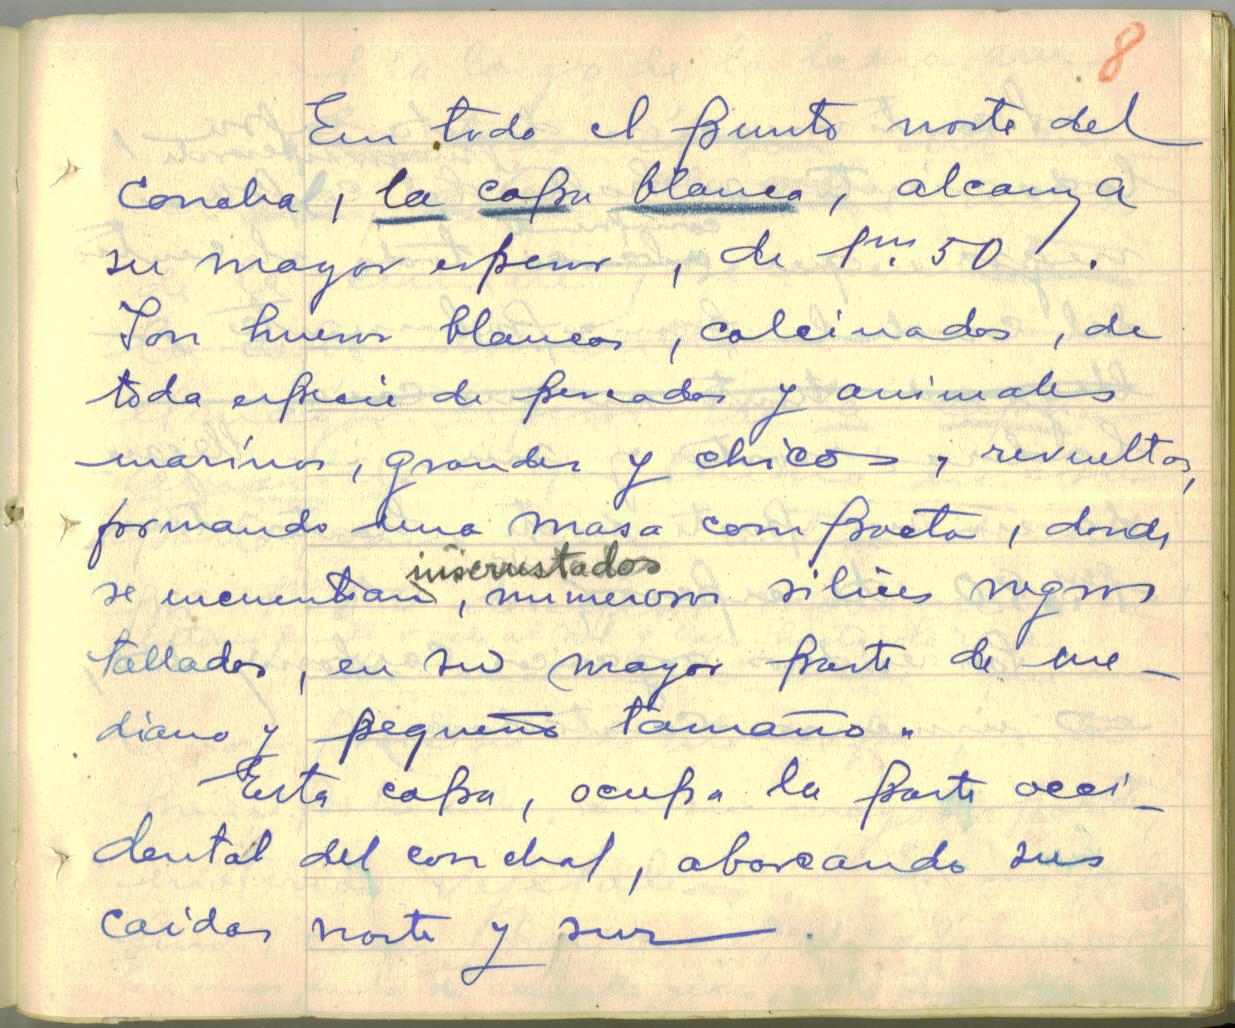 8
En todo el punto norte del
Conchal, la capa blanca, alcanza
su mayor espesor, de 1m.50.
Son huesos blancos, calcinados, de
toda especie de pescados y animales
marinos, grandes y chicos, revueltos,
formando una masa compacta, donde
inscrustados
se encuentran, numerosos silices negros
tallados, en su mayor parte de me-
diano y pequeño tamaño.
Esta capa, ocupa la parte occi-
dental del conchal, abarcando sus
caidas norte y sur.